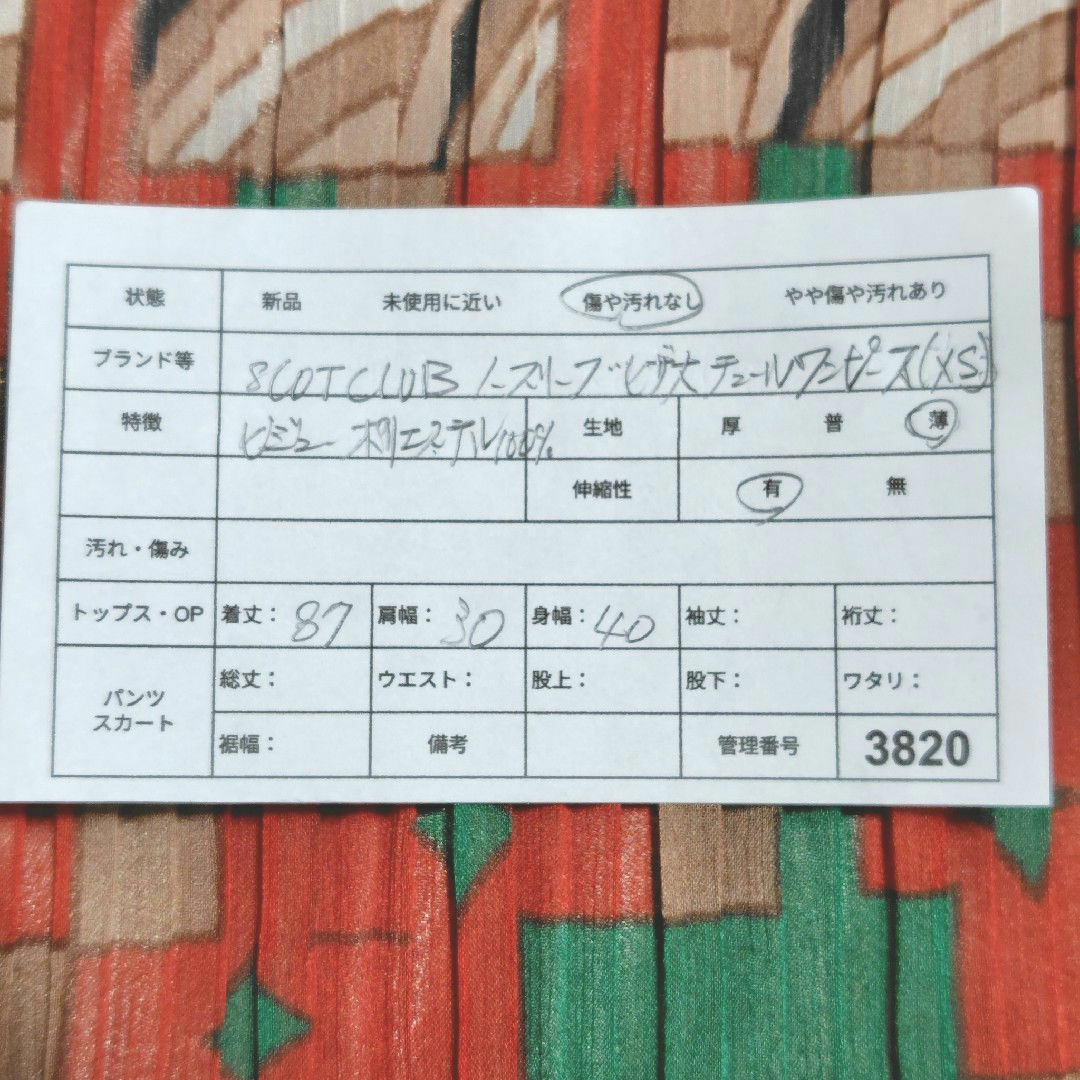 状態 新品 未使用に近い 傷や汚れなし やや傷や汚れあり
ブランド等 SCOTCLUB ノースリーブ ヒザ丈 チュールワンピース(XS)
特徴 ビジュー ポリエステル100% 生地 厚 普 薄
伸縮性 有 無
汚れ・傷み
トップス・OP 着丈: 87 肩幅: 30 身幅: 40 袖丈: 裄丈:
パンツ スカート 総丈: ウエスト: 股上: 股下: ワタリ:
裾幅: 備考 管理番号 3820